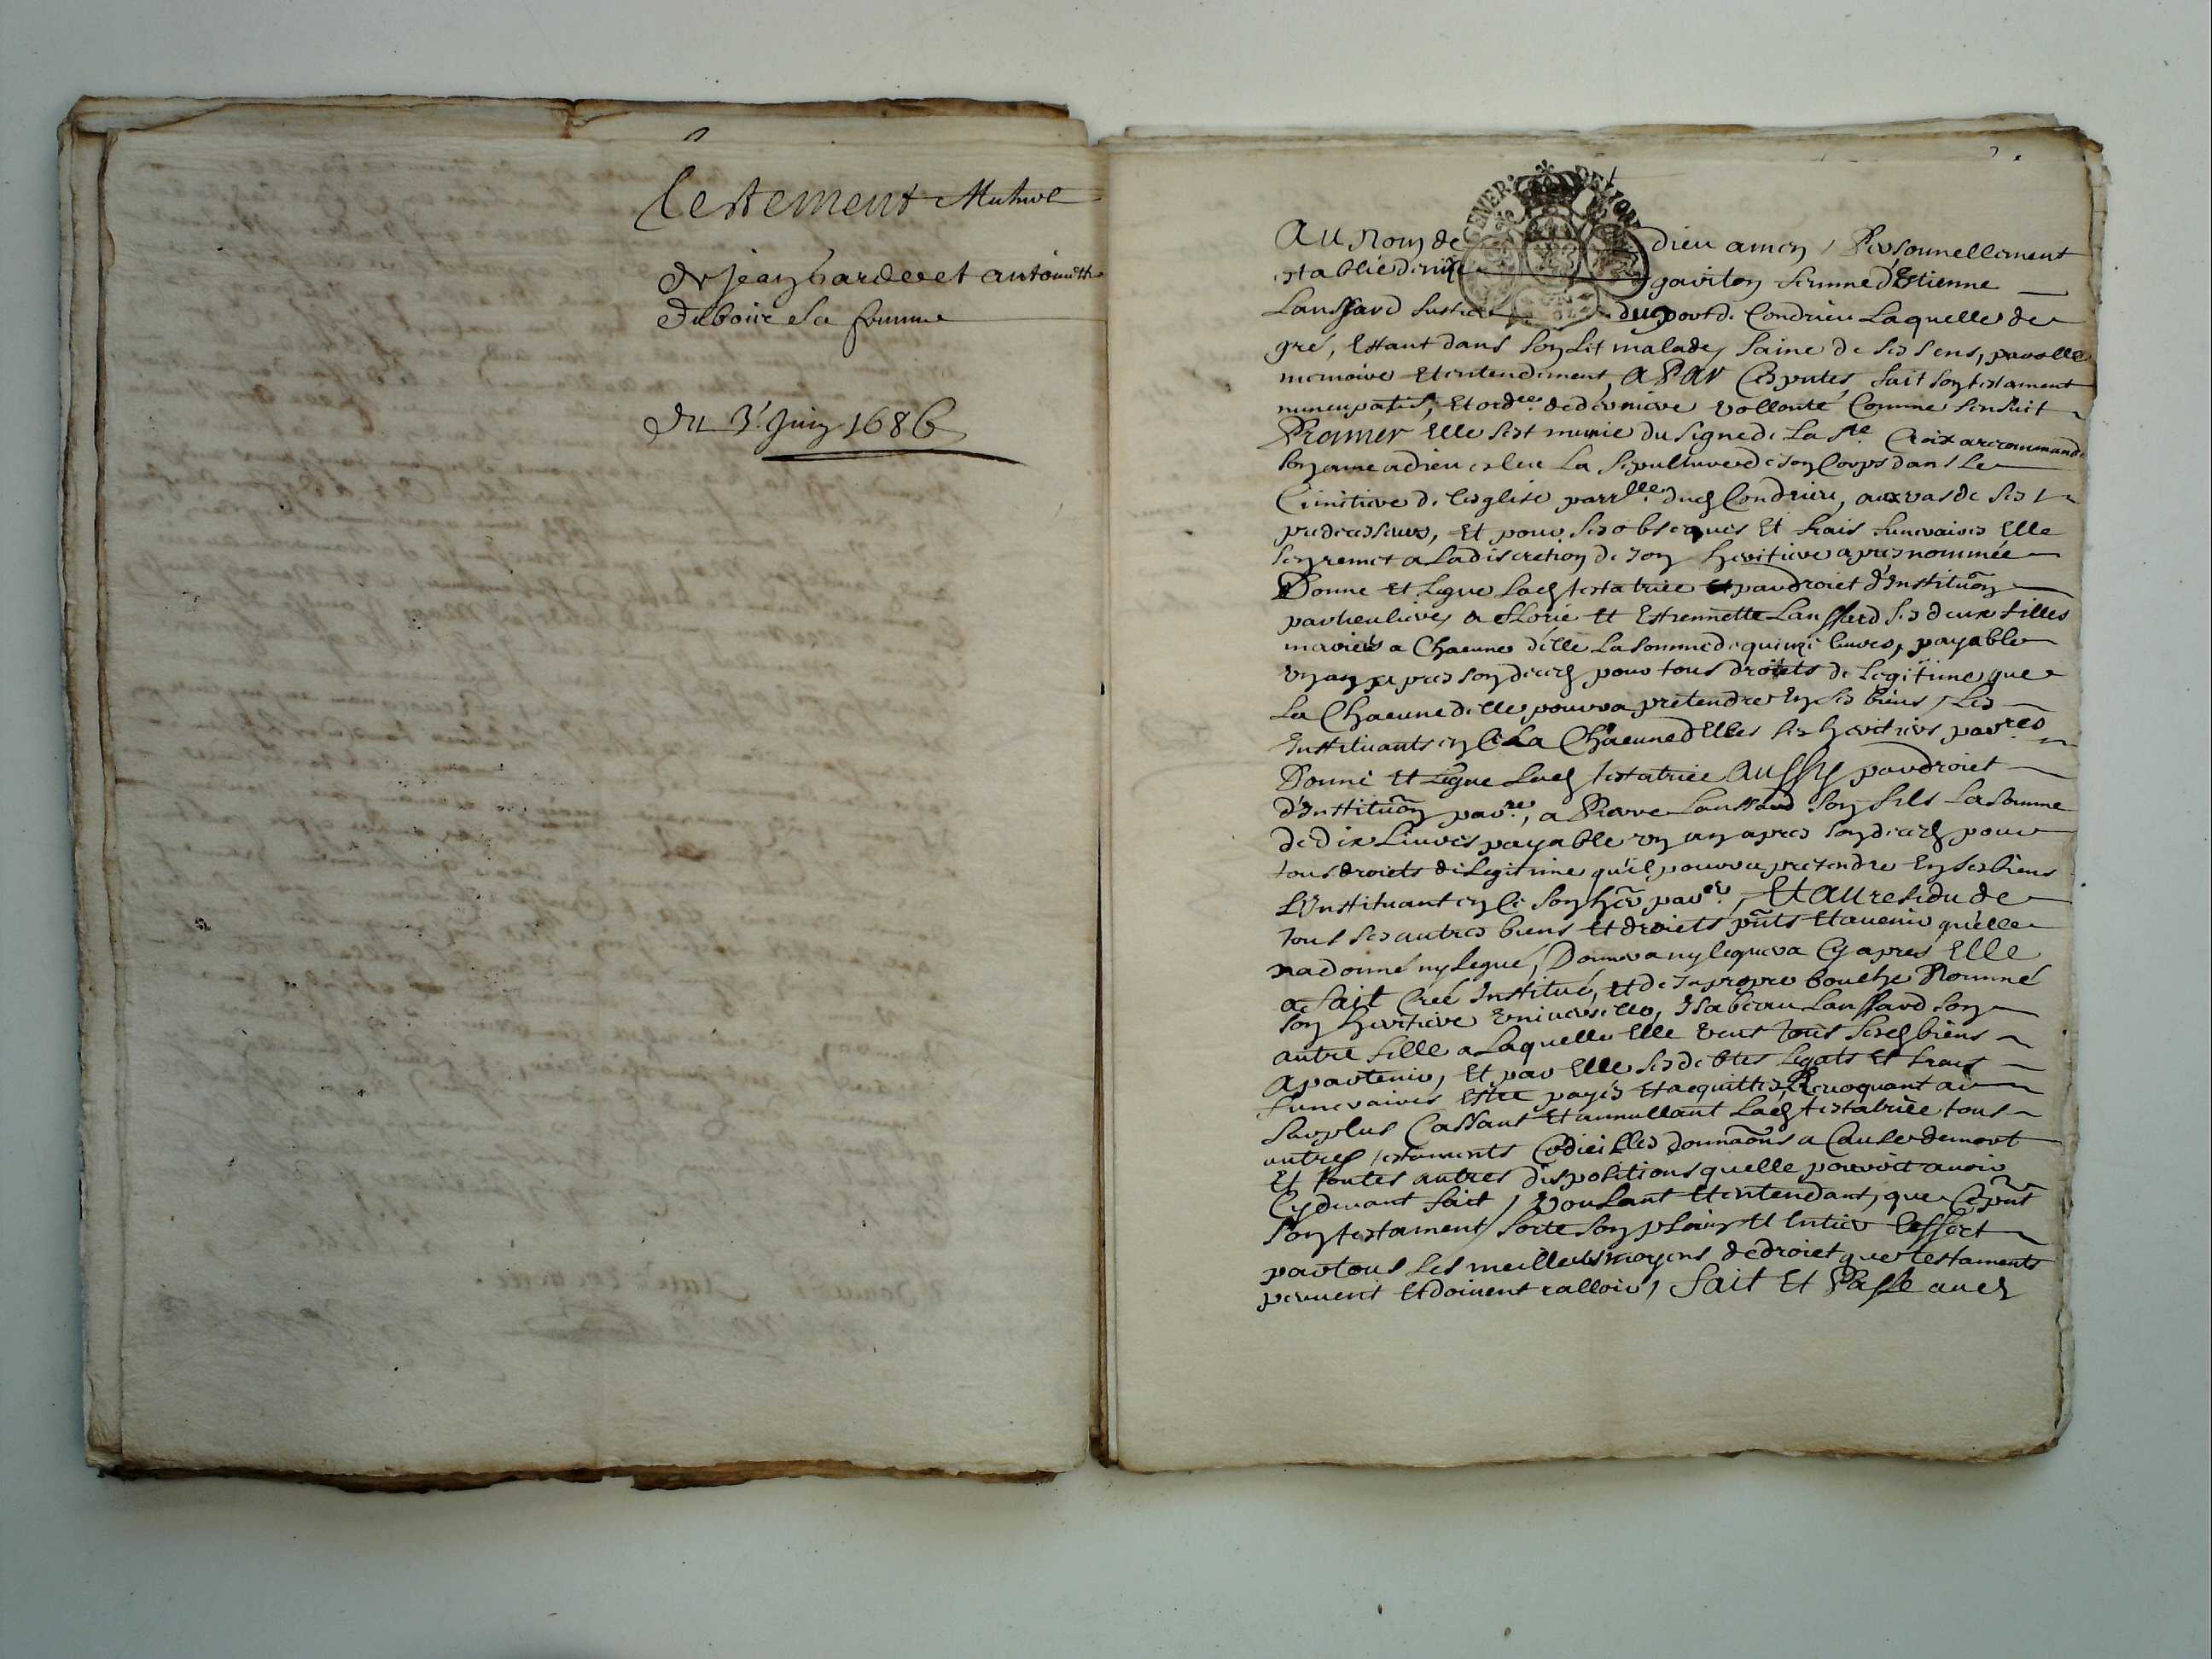 Testement Mutuel
de jean bardeet antoinette
Duboiie sa femme
Du 3e. Juin 1686
GENER. DE LYON
Au Nom de dieu amen, Personnellement
establie denize gaviton femme d'Estienne
Laussard du port de Condrieu Laquelle de
gré, Estant dans son Lit malade, saine de ses sens, parolle
memoire Et entendement, A PAR Ces pntes, fait son testament
nuncupatif, Et ordce. de derniere vollonté Comme sensuit
Premier Elle sest munie du signe de La ste. Croix a recommandé
son ame a dieu esleu La sepulture de son Corps dans Le
Cimitiere de lesglise parrlle. dud Condrieu, aux vas de ses
predecesseurs, Et pour ses obseques Et frais funeraires Elle
sen remet a La discretion de son heritiere apres nommée
Donne Et Legue Lad testatrice par droict d'Institu͠on
particuliere, a Florie Et Estiennette Laussard ses deux filles
mariées a Chacune d'elle La somme de quinze livres, payable
un an apres son decez pour tous droicts de Legitime que
La Chacune delle pourra pretendre En ses biens, Les
Instituants en Ce La Chacune d'Elles ses heritieres parres
Donne Et Legue Lad testatrice AUSSY par droict
d'Institu͠on parre., a Pierre Laussard son fils La somme
de dix Livres payable un an apres son decez pour
tous droicts de Legitime qu'il pourra pretendre En ses biens
L'Instituant en Ce son her parer., Et AU residu de
tous ses autres biens Et droicts pn͠ts Et avenir qu'elle
na donné ny Legué, Donnera ny leguera Cy apres Elle
a fait Créé Institué, Et de sa propre bouche Nommé
son heritiere Universelle, Isabeau Laussard son
autre fille a Laquelle Elle veut tous sesd biens
apartenir, Et par Elle ses debtes Legats Et frais
funeraires Estre payés Et acquittes, Revoquant au
surplus Cassant Et annullant Lad testatrice tous
autres testaments Codicilles donna͠ons a Cause de mort
Et toutes autres dispositions quelle pouvoit avoir
Cy devant fait, Voulant Et entendant, que Ce pn͠t
son testament sorte son plain Et Entier Effect
par tous Les meilleurs moyens de droict que testaments
peuvent Et doivent valloir, Fait Et Passé aud